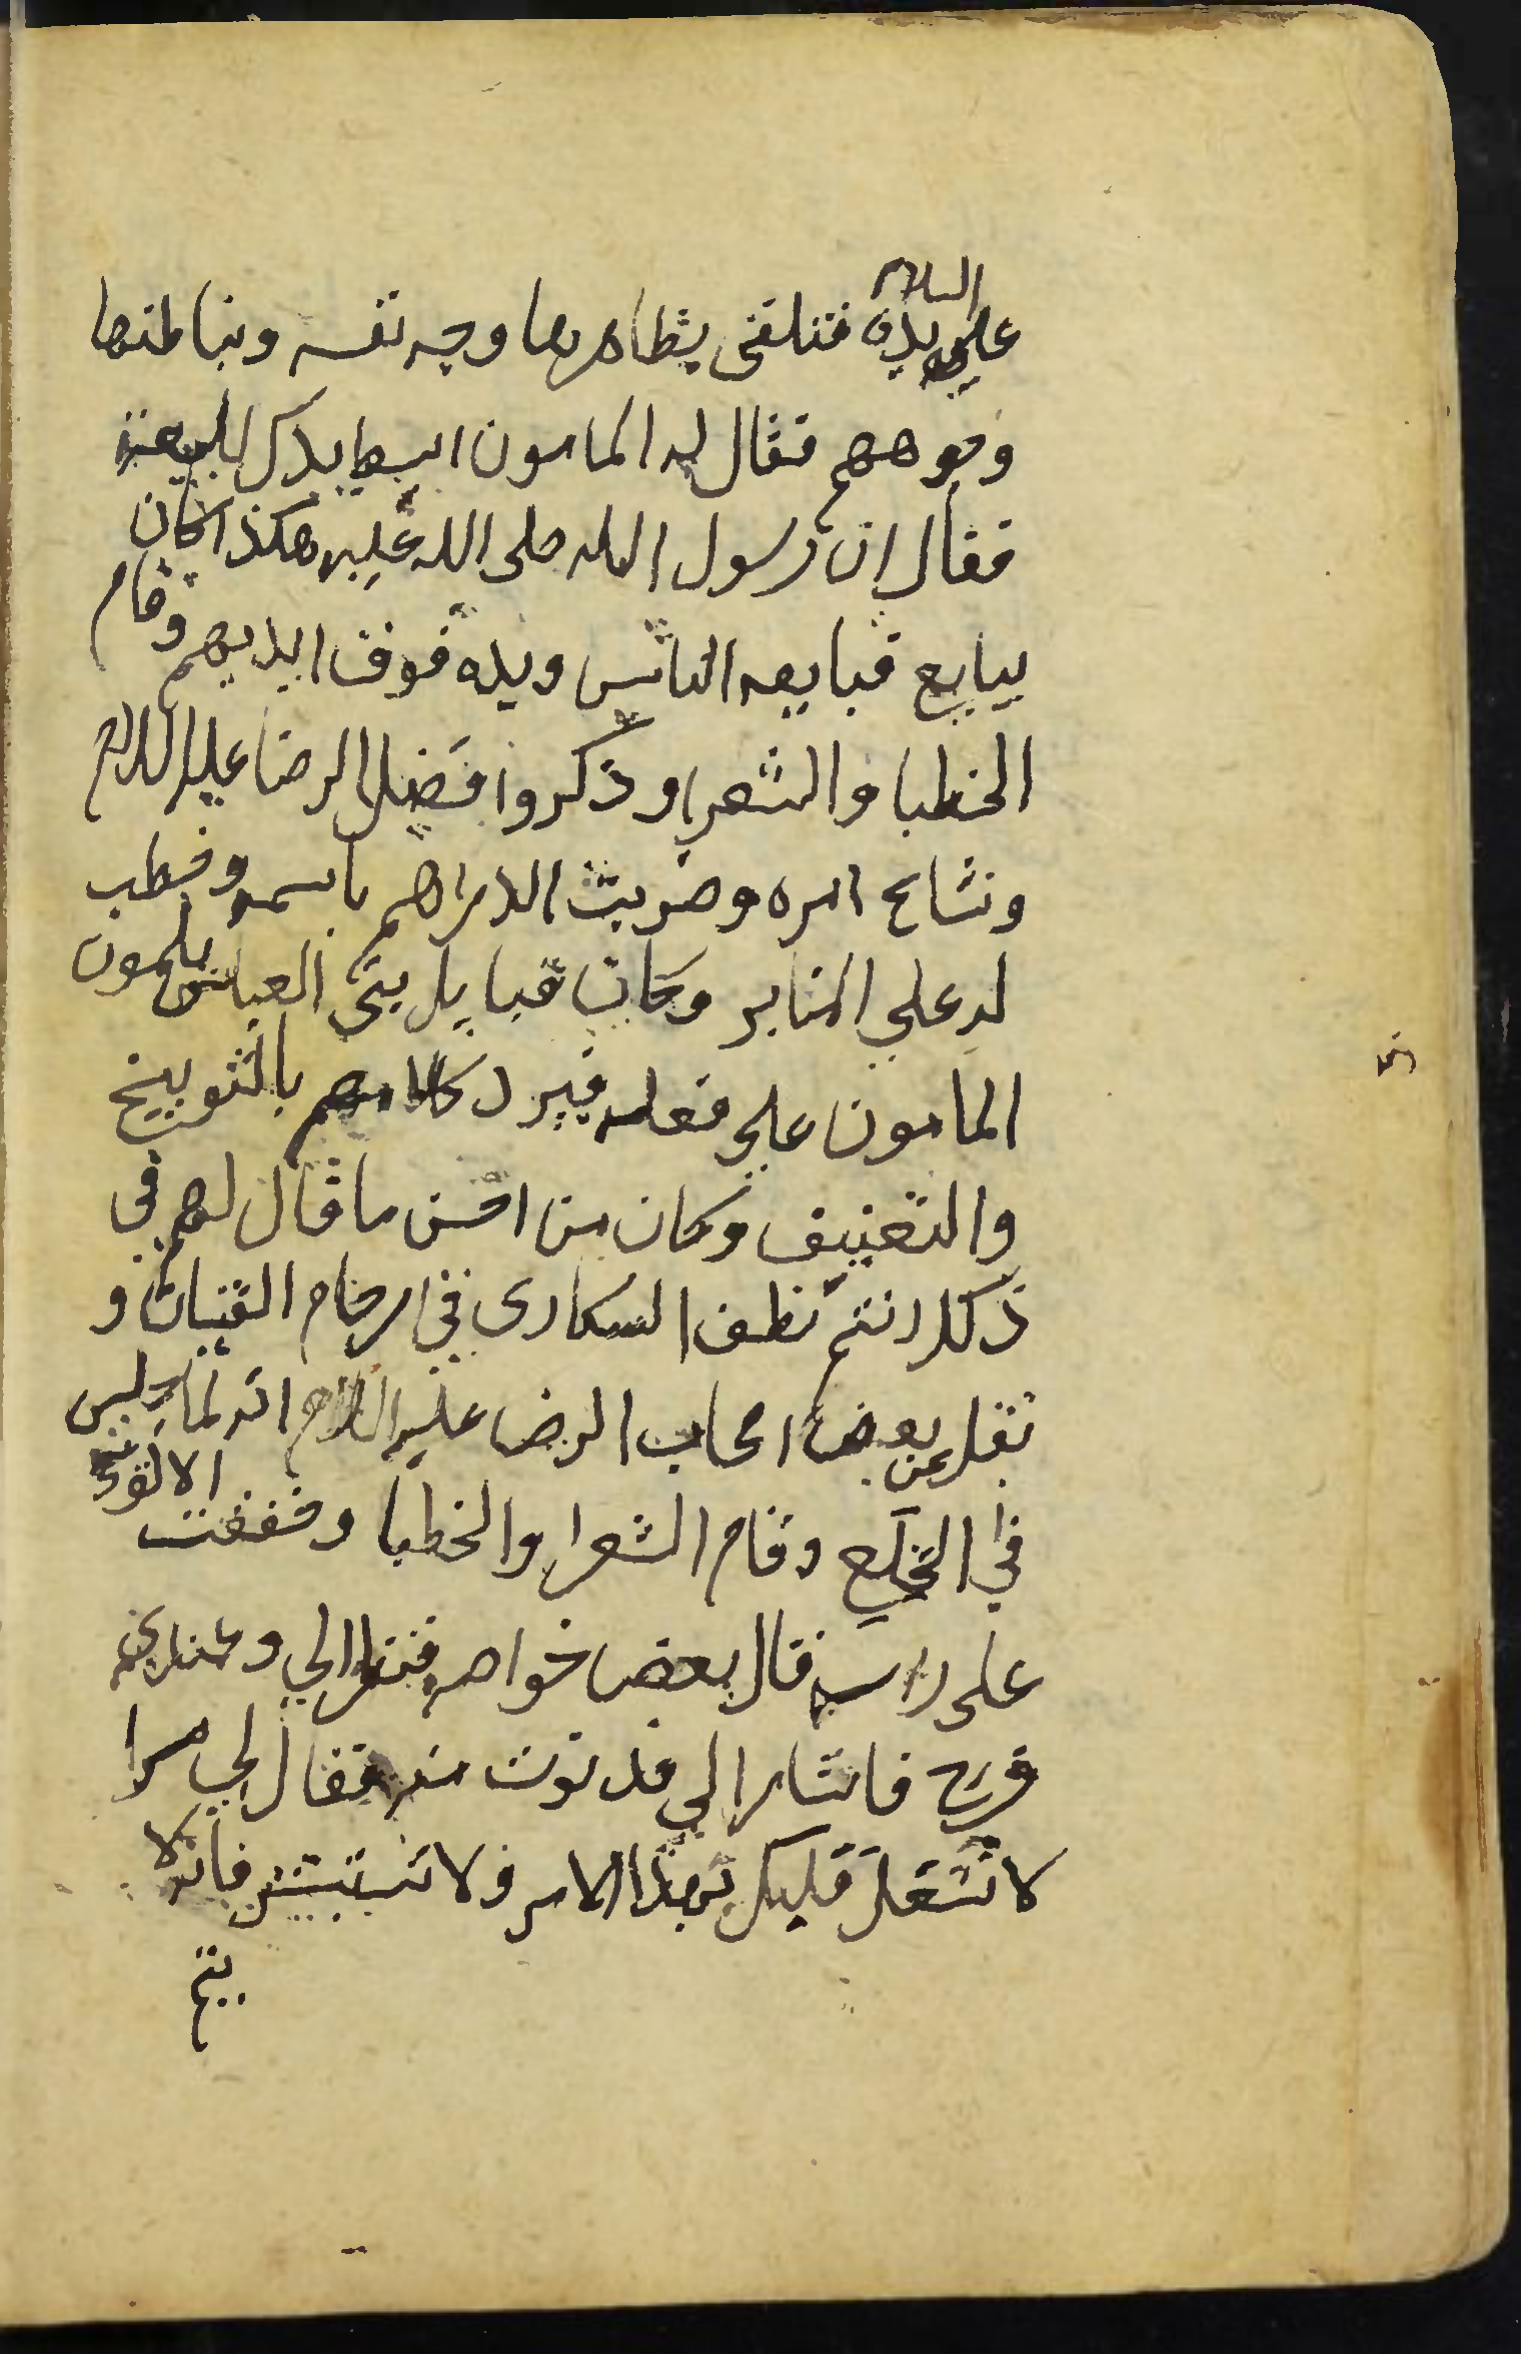 عليه السلام يده فتلقى بظاهرها وجه نفسه وبباطنها
وجوههم فقال له المامون ابسط يدك للبيعة
فقال ان رسول الله صلى الله عليه هكذا كان
يبايع فبايعه الناس ويده فوق ايديهم وقام
الخطبا والشعرا وذكروا فضل الرضا عليه السلام
وشاع امره وضربت الدراهم باسمه وخطب
له علي المنابر وكان قبايل بني العباس يلمون
المامون علي فعله فيرد كلامهم بالتوبيخ
والتعنيف وكان من احسن ما قال لهم في
ذلك انتم نطف السكارى في ارحام القينات و
نقل عن بعض اصحاب الرضا عليه السلام انه لما جلس
في الخلع وقام الشعرا والخطبا وخفقت الالوية
على راسه قال بعض خواصه فنظر الي وعندي
فرح فاشار الي فدنوت منه فقال لي سرا
لا تشغل قلبك بهذا الامر ولا تستبشر فانه لا
يتم